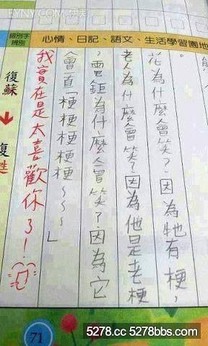 心情、日記、語文、生活學習園地
花為什麼會笑?因為牠有梗,
老人為什麼會笑?因為他是老梗
,電鋸為什麼人會笑?因為它
會一直「梗梗梗梗~~~」
我實在是太喜歡你了!
復甦
71
5278.cc 5278bbs.com